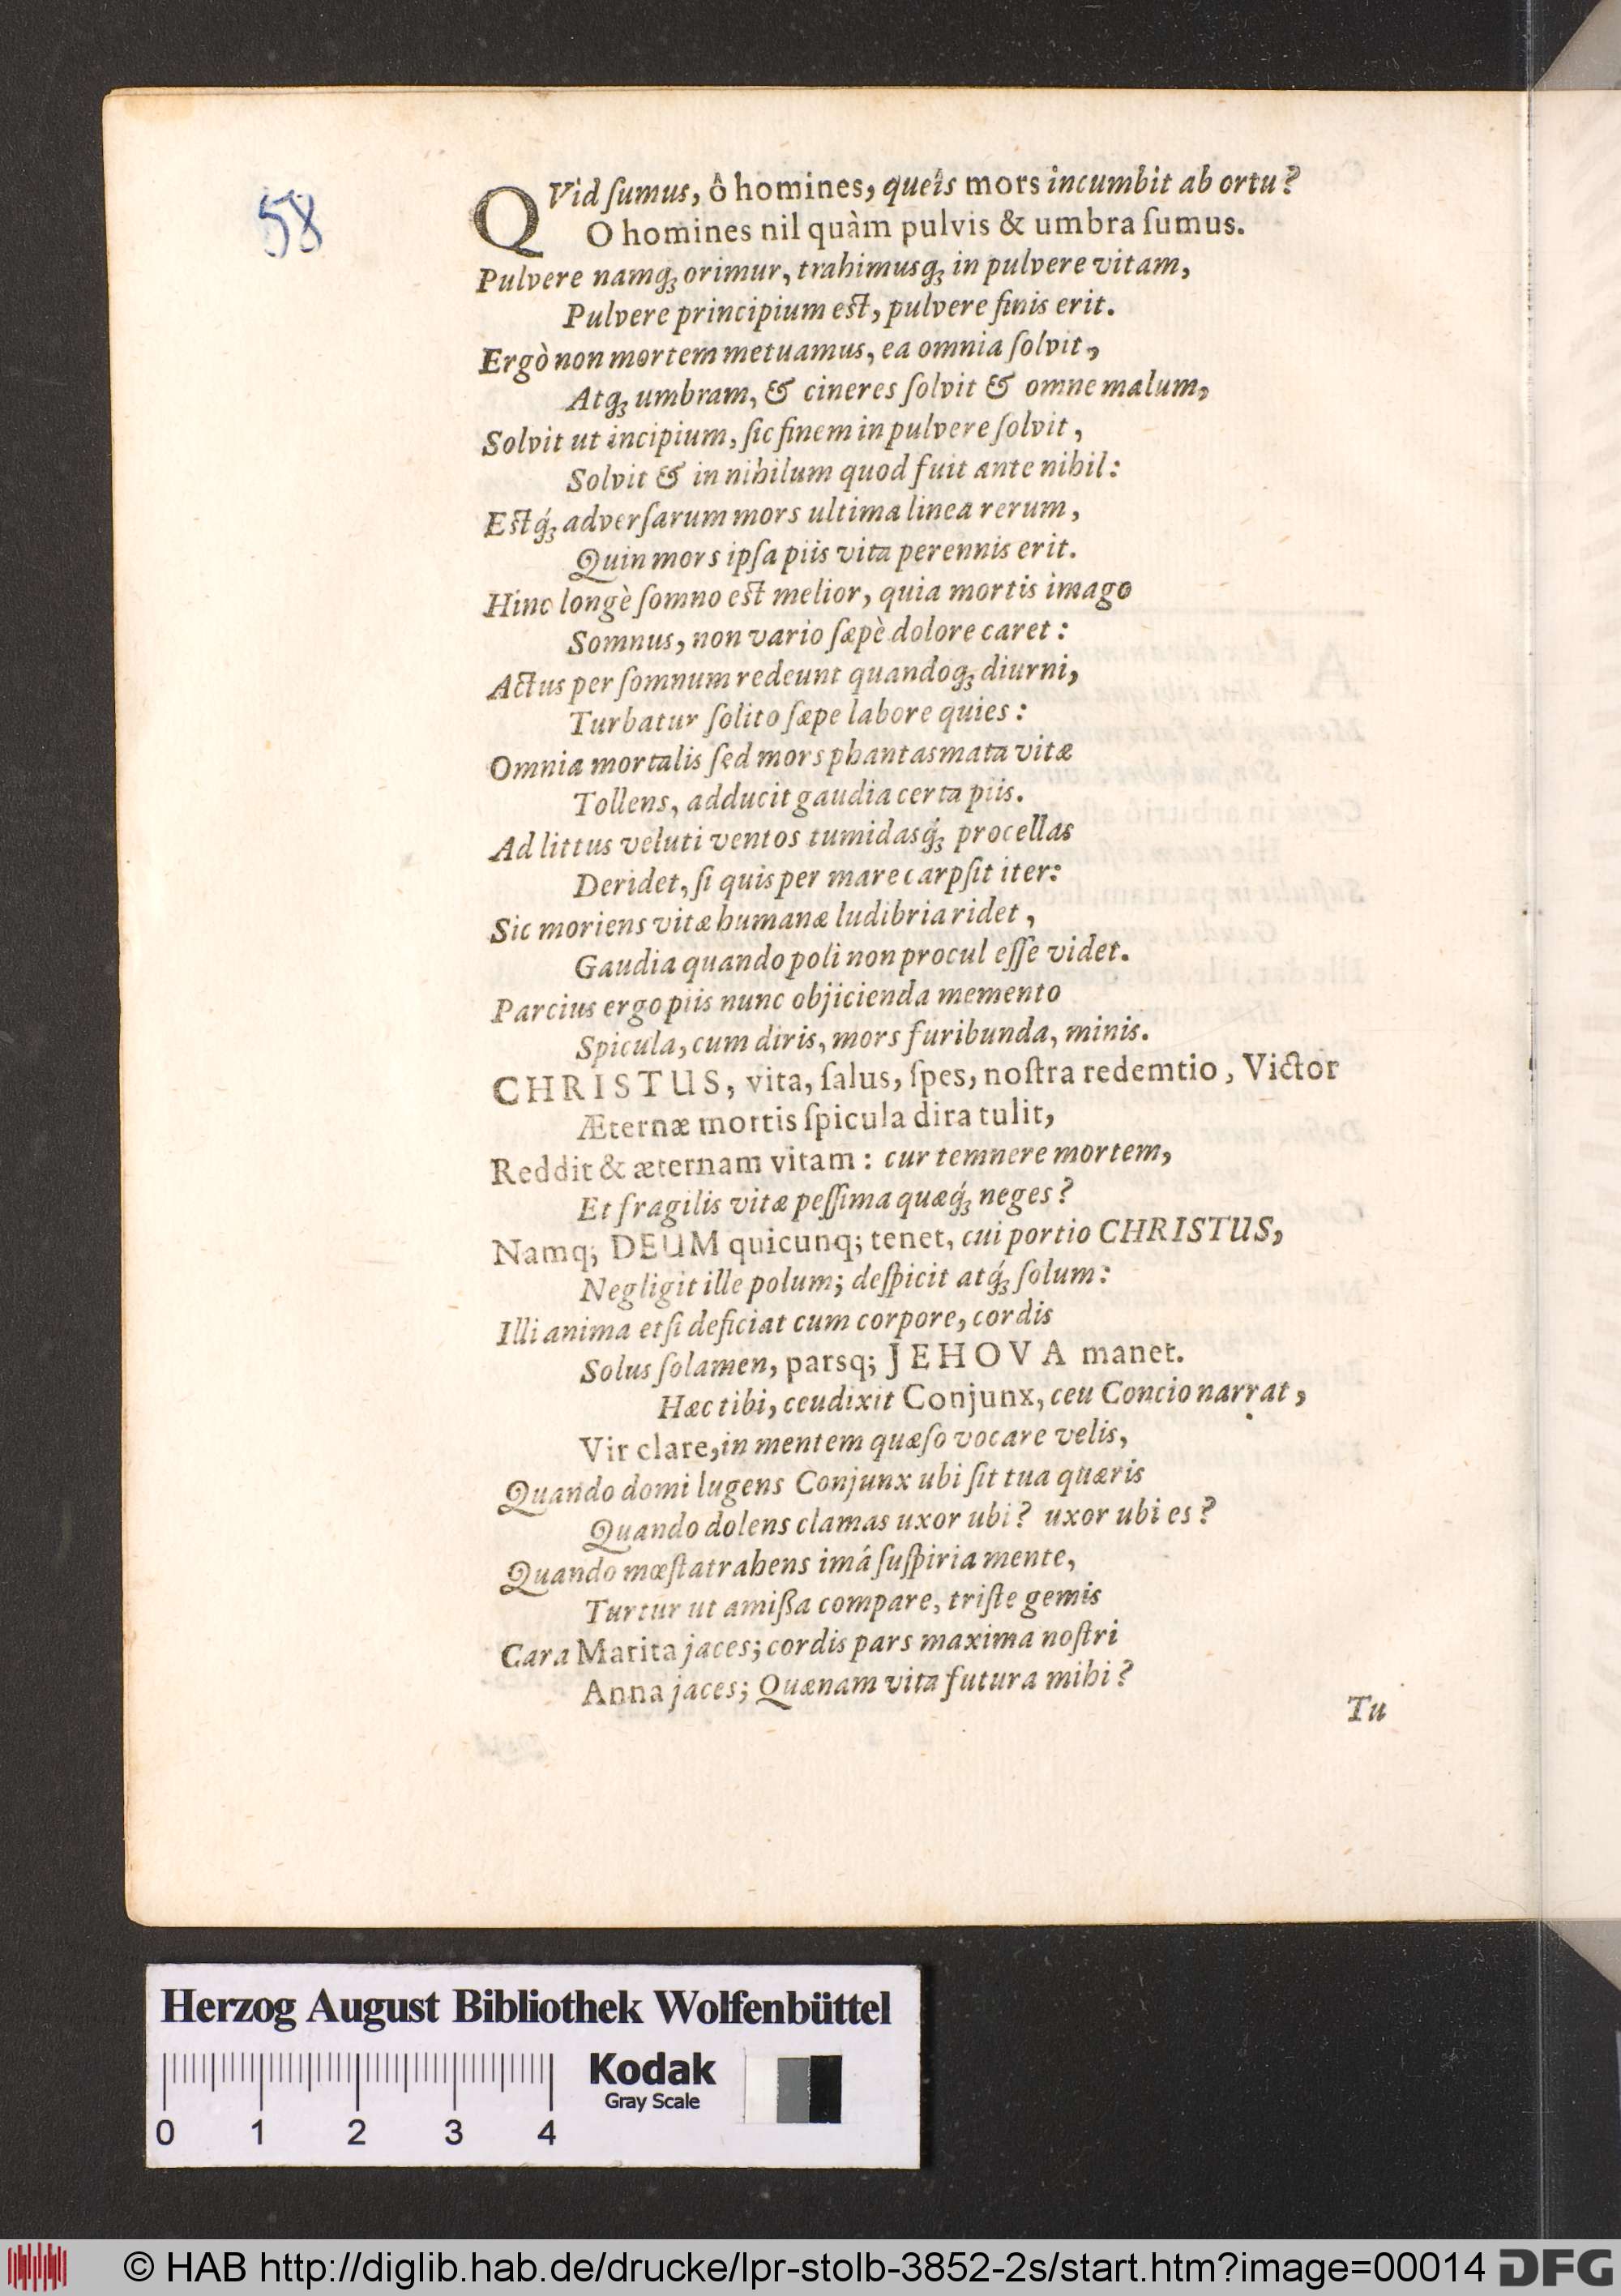 58
QVid ſumus, ô homines, queîs mors incumbit ab ortu?
O homines nil quàm pulvis & umbra ſumus.
Pulvere namq́; orimur, trahimusq́; in pulvere vitam,
Pulvere principium est, pulvere finis erit.
Ergò non mortem metuamus, ea omnia ſolvit,
Atq; umbram, & cineres ſolvit & omne malum,
Solvit ut incipium, ſic finem in pulvere ſolvit,
Solvit & in nihilum quod fuit ante nihil:
Estq́; adverſarum mors ultima linea rerum,
Quin mors ipſa piis vita perennis erit.
Hinc longè ſomno est melior, quia mortis imago
Somnus, non vario ſæpè dolore caret:
Actus per ſomnum redeunt quandoq; diurni,
Turbatur ſolito ſæpe labore quies:
Omnia mortalis ſed mors phantasmata vitæ
Tollens, adducit gaudia certa piis.
Ad littus veluti ventos tumidasq́; procellas
Deridet, ſi quis per mare carpſit iter:
Sic moriens vitæ humanæ ludibria ridet,
Gaudia quando poli non procul eſſe videt.
Parcius ergo piis nunc objicienda memento
Spicula, cum diris, mors furibunda, minis.
CHRISTUS, vita, ſalus, ſpes, noſtra redemtio, Victor
Æternæ mortis ſpicula dira tulit,
Reddit & æternam vitam: cur temnere mortem,
Et fragilis vitæ peſſima quæq́; neges?
Namq; DEUM quicunq; tenet, cui portio CHRISTUS,
Negligit ille polum; deſpicit atq́; ſolum:
Illi anima etſi deficiat cum corpore, cordis
Solus ſolamen, parsq; JEHOVA manet.
Hæc tibi, ceu dixit Conjunx, ceu Concio narrat,
Vir clare, in mentem quæſo vocare velis,
Quando domi lugens Conjunx ubi ſit tua quæris
Quando dolens clamas uxor ubi? uxor ubi es?
Quando mœſta trahens imá ſuſpiria mente,
Turtur ut amißa compare, triſte gemis
Cara Marita jaces; cordis pars maxima noſtri
Anna jaces; Quænam vita futura mihi?
Tu
Herzog August Bibliothek Wolfenbüttel
Kodak
Gray Scale
0 1 2 3 4
© HAB http://diglib.hab.de/drucke/lpr-stolb-3852-2s/start.htm?image=00014 DFG